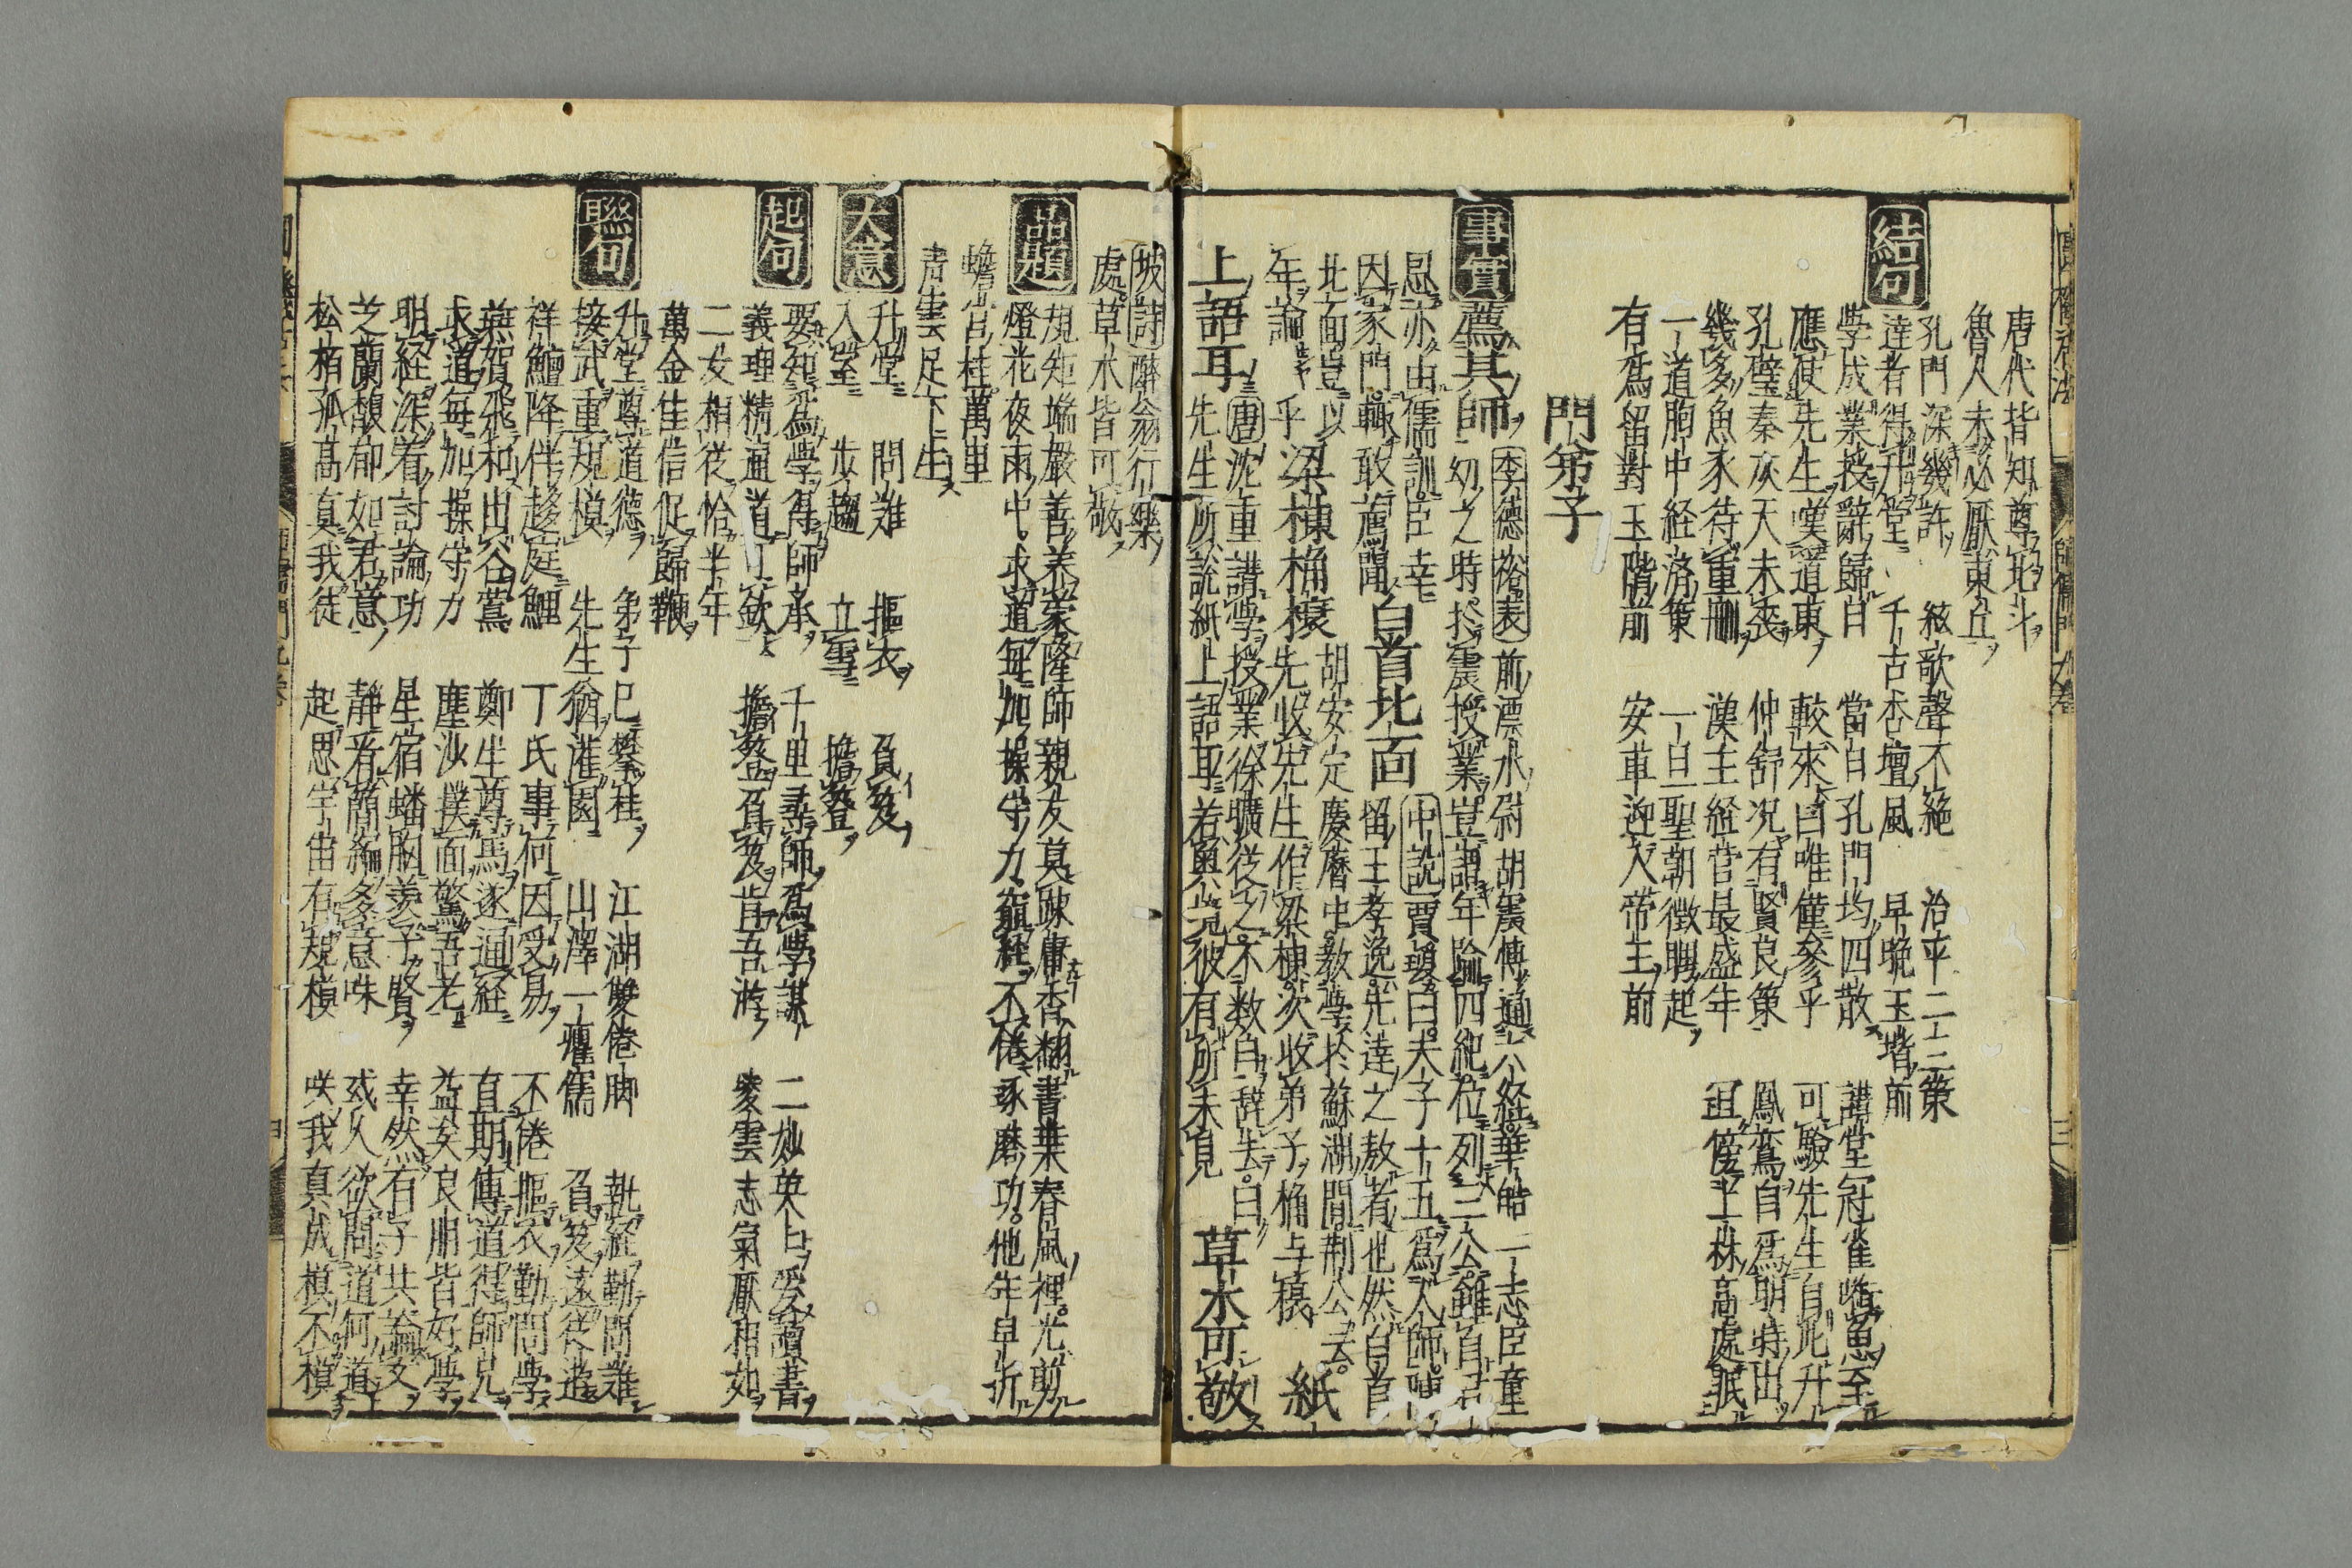 唐代皆知尊北斗
魯人未必厭東丘
結句
孔門深幾許 絃歌聲不絶 治平二三策
達者得升堂 千古杏壇風 早晩玉堦前
學成業授辭歸日 當日孔門均四散 講堂冠雀啣魚至
應使先生嘆道東 較來曰唯僅參乎 可驗先生自此升
孔壁秦灰天未喪 仲舒況有賢良策 鳳鸞自爲明時出
幾多魚豕待重刪 漢主経営最盛年
一道胸中経済策 一旦聖朝徴聘起
有爲留對玉階前 安車迎入帝王前
門弟子
事實
薦其師 李德裕表 前漂水尉胡震傳通公経華皓一志臣童
幼之時於震授業豈謂年踰四紀位列三公雖自
忌亦由儒訓臣幸 中説 賈瓊曰夫子十五爲人師
因家門輙敢薦聞 白首北面 留王孝逸先達之敖者也然白首
北面豈以 胡安定慶曆中教學於蘇湖間荆公去
年論乎 梁棟桷榱 先收先生作梁棟次收弟子桷与榱 紙
上語耳 唐 沈重講學授業徐曠従之不数自辞去曰
先生所説紙上語耳若奥覚彼有所未見 草木可敬
坡詩 醉翁行樂
處草木皆可敬
品題
規矩端嚴善養蒙隆師親友莫踈庸香翻書葉春風裡光剪
燈花夜雨中求道毎加操守力窮経不倦琢磨功他年早折
蟾宮桂萬里
青雲足下生
大意
升堂 問難 摳衣 負笈
入室 歩趨 立雪 擔簦
起句
要知爲學得師承 千里尋師爲學謀 二妙英上受讀書
義理精通道 擔簦負笈肯吾游 麥雲志氣厭相如
二女相従恰半年
萬金隹信促歸鞭
聯句
升堂尊道德 弟子已攀桂 江湖雙倦脚 執経勤問難
接武重規模 先生猶灌園 山澤一癯儒 負笈遠従遊
祥鱣降伴趍庭鯉 丁氏事何因受易 不倦摳衣勤問學
燕賀飛和出谷鶯 鄭生尊馬逐通経 直期傳道得師兄
求道毎加操守力 塵沙撲面驚吾老 益矣良朋皆好學
明経深着討論功 星宿蟠胸羨子賢 幸然有子共論文
芝蘭馥郁如君意 静看簡編多意味 或人欲問道何道
松栢孤高真我徒 起思宇宙有規模 咲我真成模不模